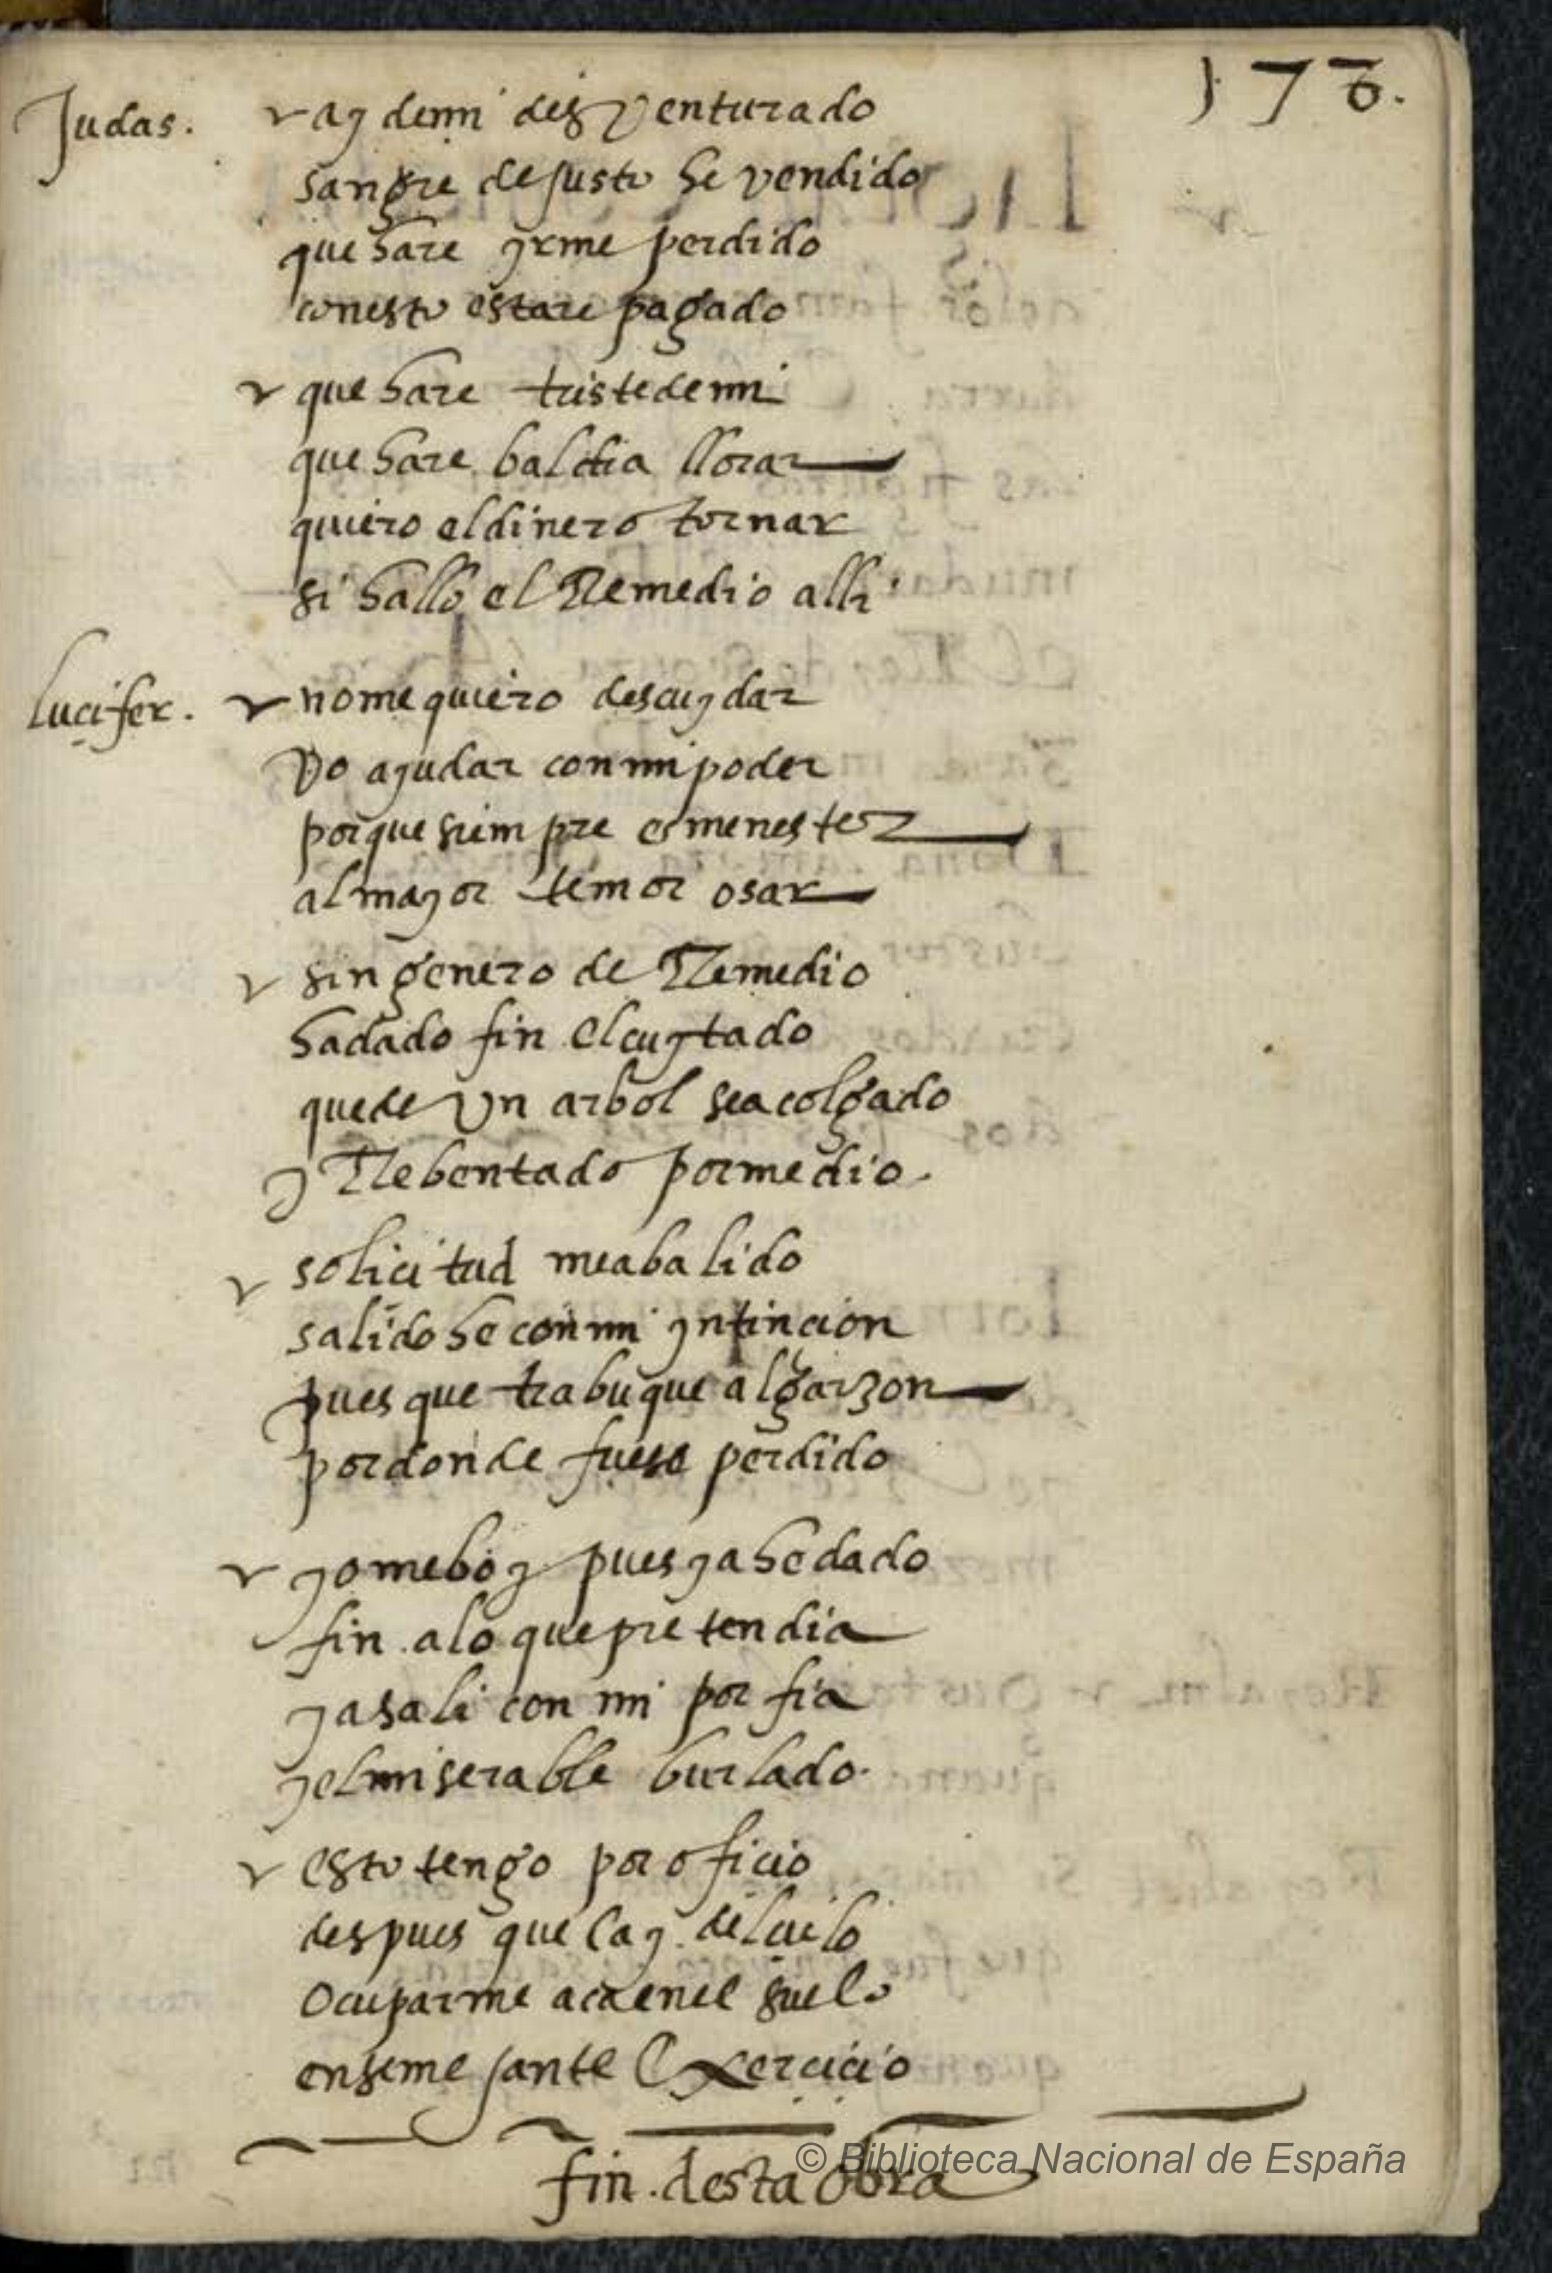 176.
Judas. ay demi desventurado
sangre de justo he vendido
que hare yrme perdido
con esto estare pagado
que hare triste demi
que hare baldia llorar
quiero el dinero tornar
si hallo el Remedio alli
lucifer. no me quiero descuydar
Vo ayudar con mi poder
porque siempre es menester
al mayor temor osar
sin genero de Remedio
ha dado fin el cuytado
que de Vn arbol sea colgado
y Rebentado por medio.
solicitud mea balido
salido he con mi yntincion
pues que trabuque al garzon
por donde fuese perdido
yo me boy pues ya he dado
fin a lo que pretendia
ya sali con mi porfia
y el miserable burlado.
esto tengo por oficio
despues que cay del cielo
Ocuparme aca en el suelo
en semejante Exercicio
fin. desta obra
© Biblioteca Nacional de España